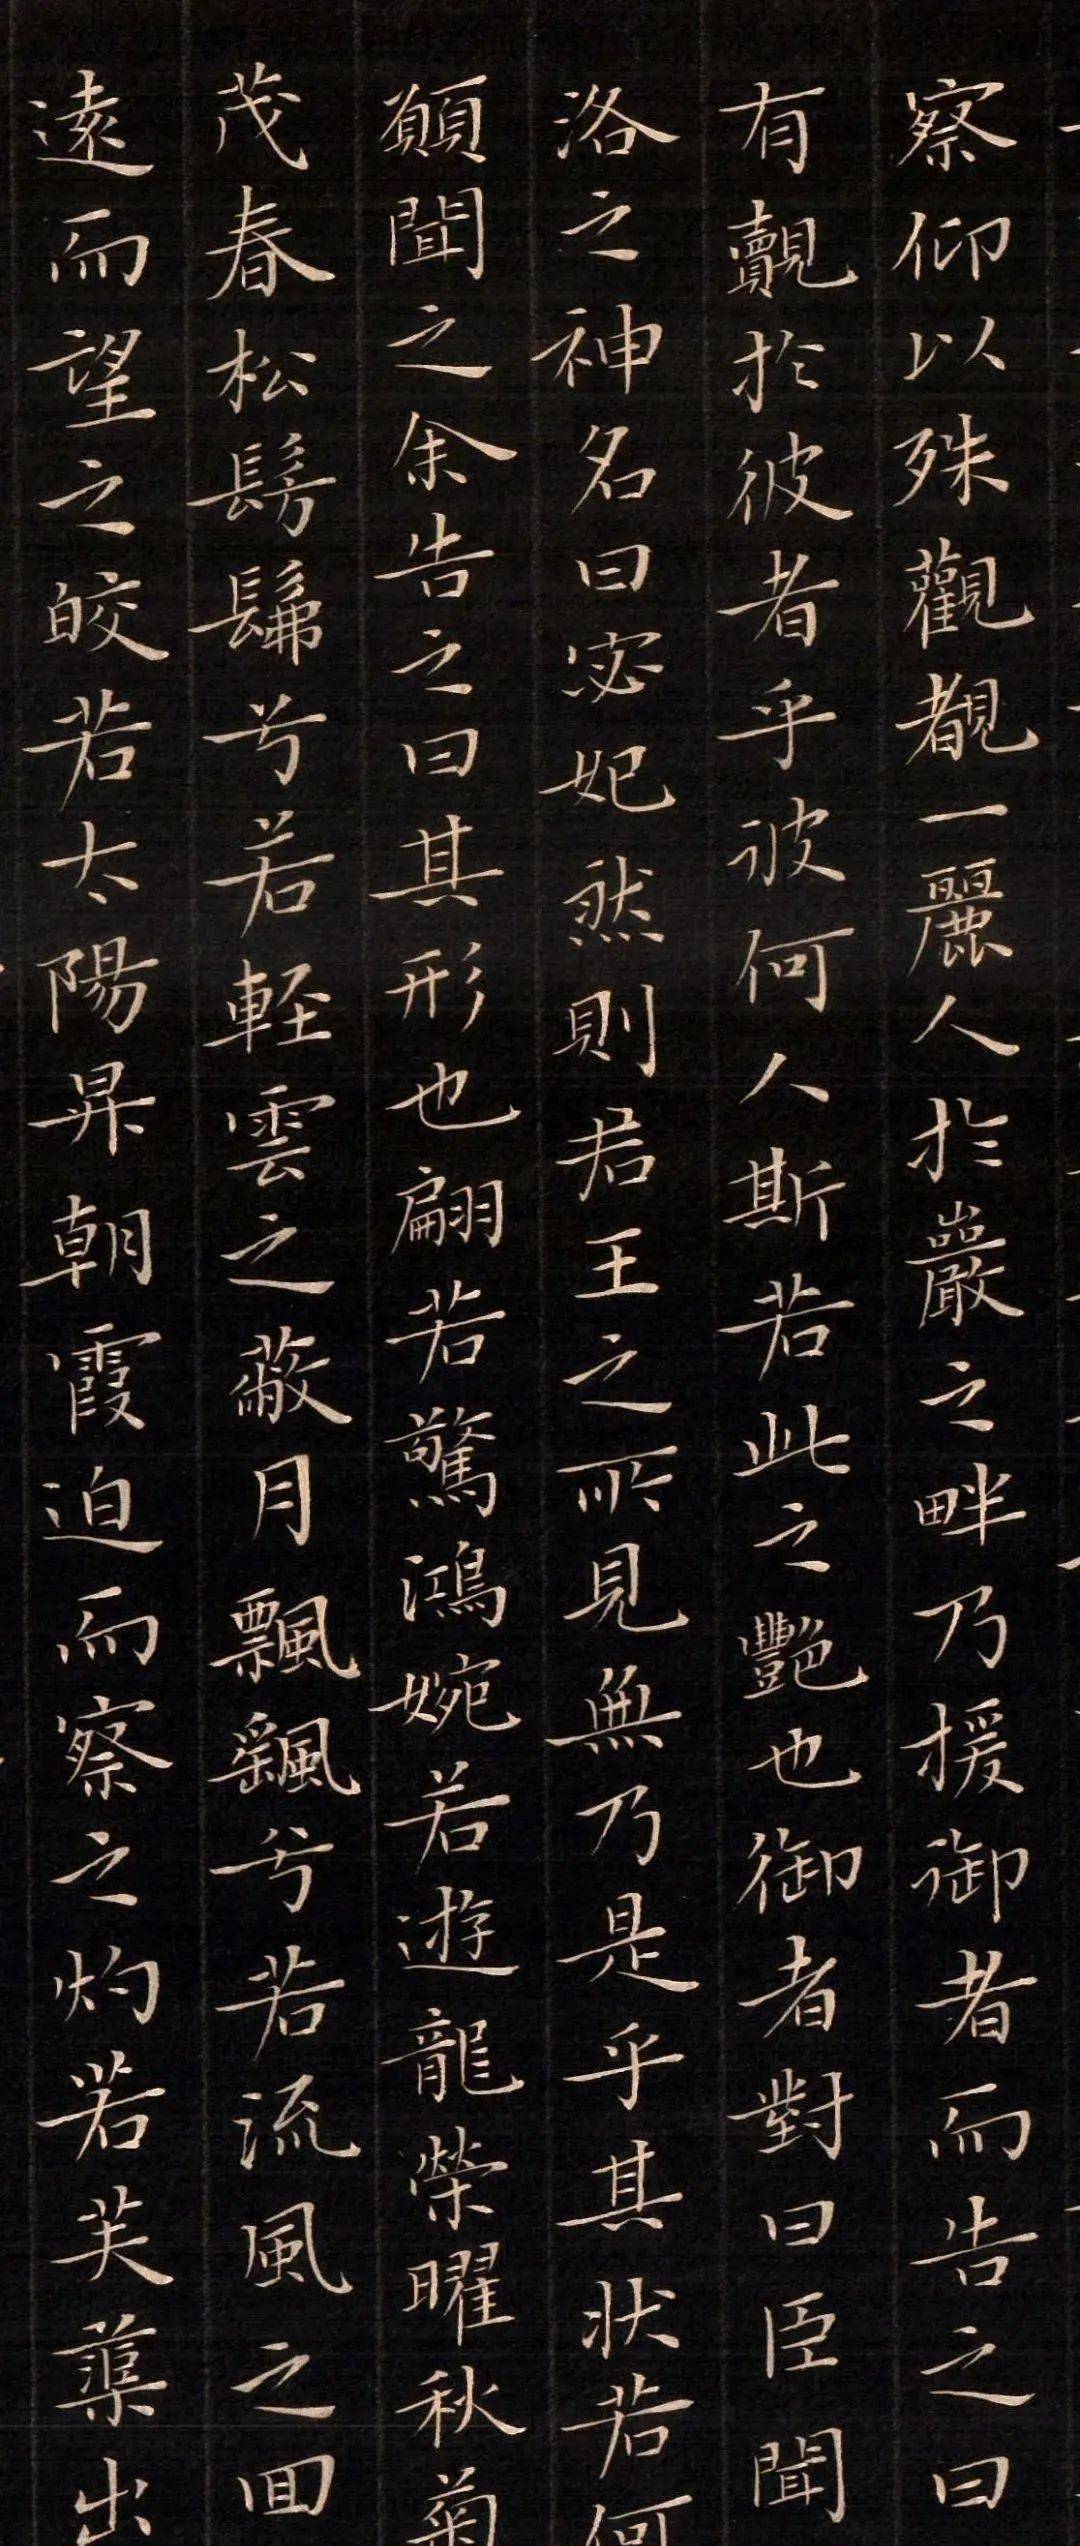 察仰以殊觀覩一麗人於巖之畔乃援御者而告之曰
有覿於彼者乎彼何人斯若此之艷也御者對曰臣聞
洛之神名曰宓妃然則君王之所見無乃是乎其狀若何
願聞之余告之曰其形也翩若驚鴻婉若遊龍榮曜秋菊
茂春松髣髴兮若輕雲之蔽月飄颻兮若流風之回
遠而望之皎若太陽昇朝霞迫而察之灼若芙蕖出